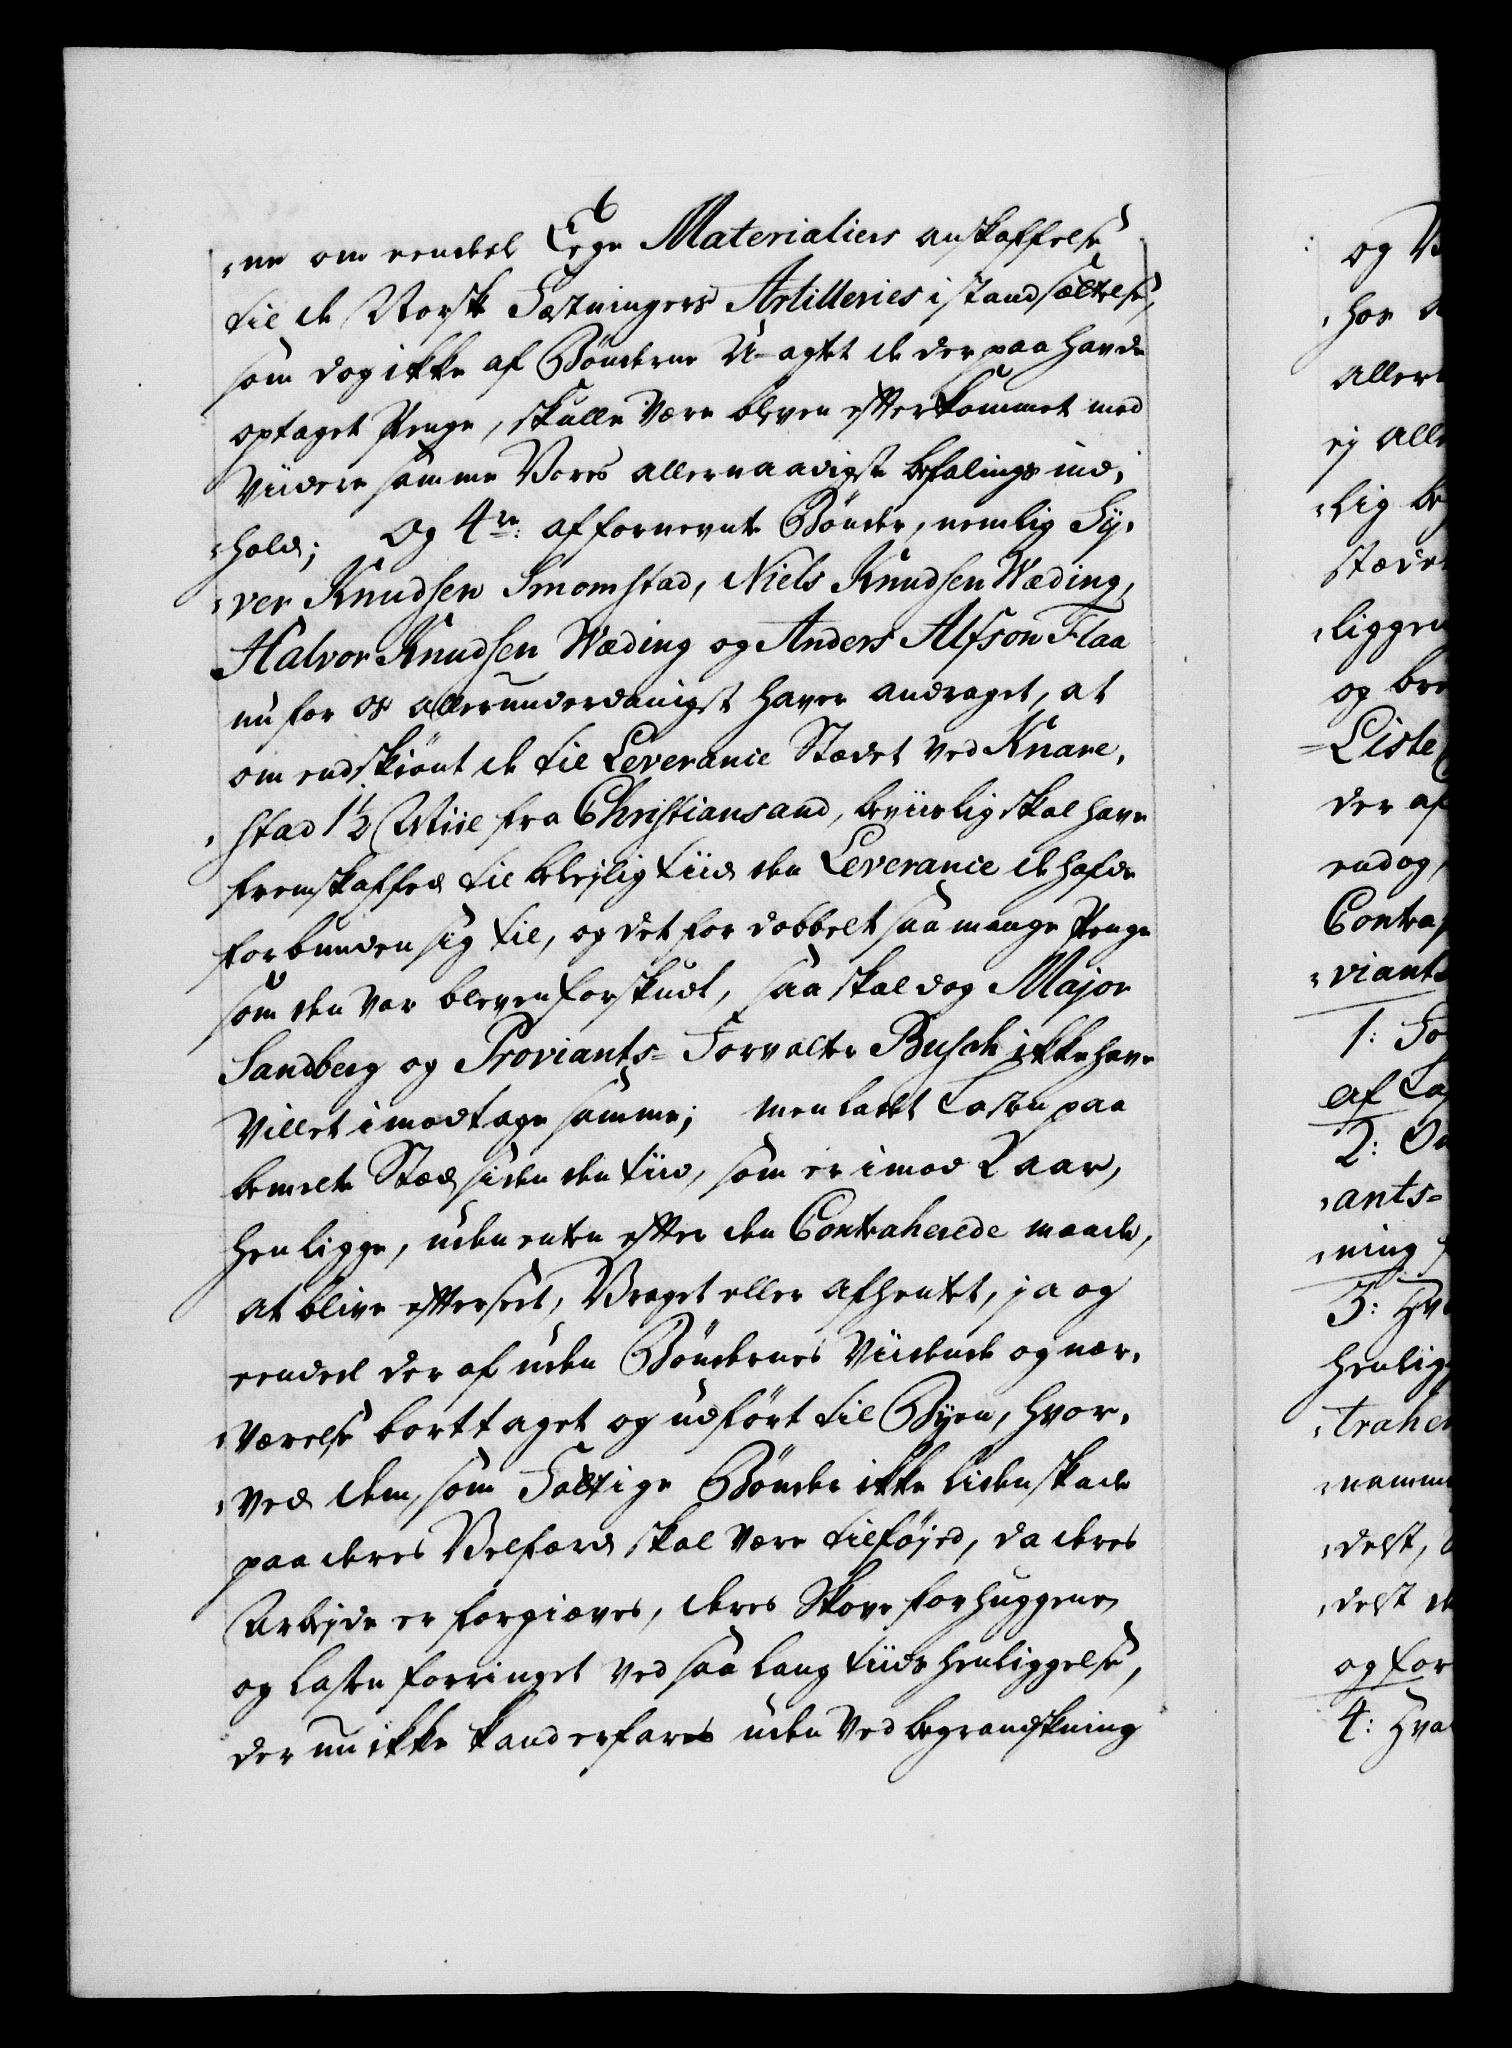 -ne om eendeel Eege Materialiers anskaffelse
til de Norske Fæstningers Artilleries istandsættelse,
som dog ikke af Bönderne U-agtet de derpaa havde
optaget Penge, skulle være bleven efterkommet med
Viidere samme Vores allernaadigste befalings ind-
-hold; Og 4re: af fornevnte Bönder, nemlig Sy-
-ver Knudsen Smomstad, Niels Knudsen Wæding,
Halvor Knudsen Wæding og Anders Alfson Flaa
nu for os allerunderdanigst haver andraget, at
omendskiönt de til Leverance Stædet ved Knare-
-stad 1½ Miil fra Christiansand, beviislig skal have
fremskaffed til belejlig tiid den Leverance de hafde
forbunden sig til, og det for dobbelt saa mange Penge
som den var bleven forskudt, saa skal dog Major
Sandberg og Proviants-Forvalter Busch ikke have
Villet imodtage samme; men ladet Lasten paa
bemelte Stæd siden den tiid, som er imod 2 aar,
henligge, uden enten efter den Contraherede maade,
at blive efterseet, Vraget eller afhentet, ja og
eendeel der af uden Böndernes Viidende og nær-
-værelse borttaget og udfört til Byen, hvor-
-ved dem, som Fattige Bönder ikke liden skade
paa deres Velfærd skal være tilföjed, da deres
Arbejde er forgiæves, deres Skove forhuggene,
og lasten forringet ved saa lang tiids henliggelse,
der nu ikke kand erfares uden ved begrandskning
og V
-hos
aller
ej alle
-lig be
stæde
-liggen
og bre
-Liste
der af
endog,
Contra
-viants
1: Fo
af La
2: Om
-ants-
-ning
3: Hvo
henlig
-trahe
-nammen
-delst,
-delst
og for
4: Hva